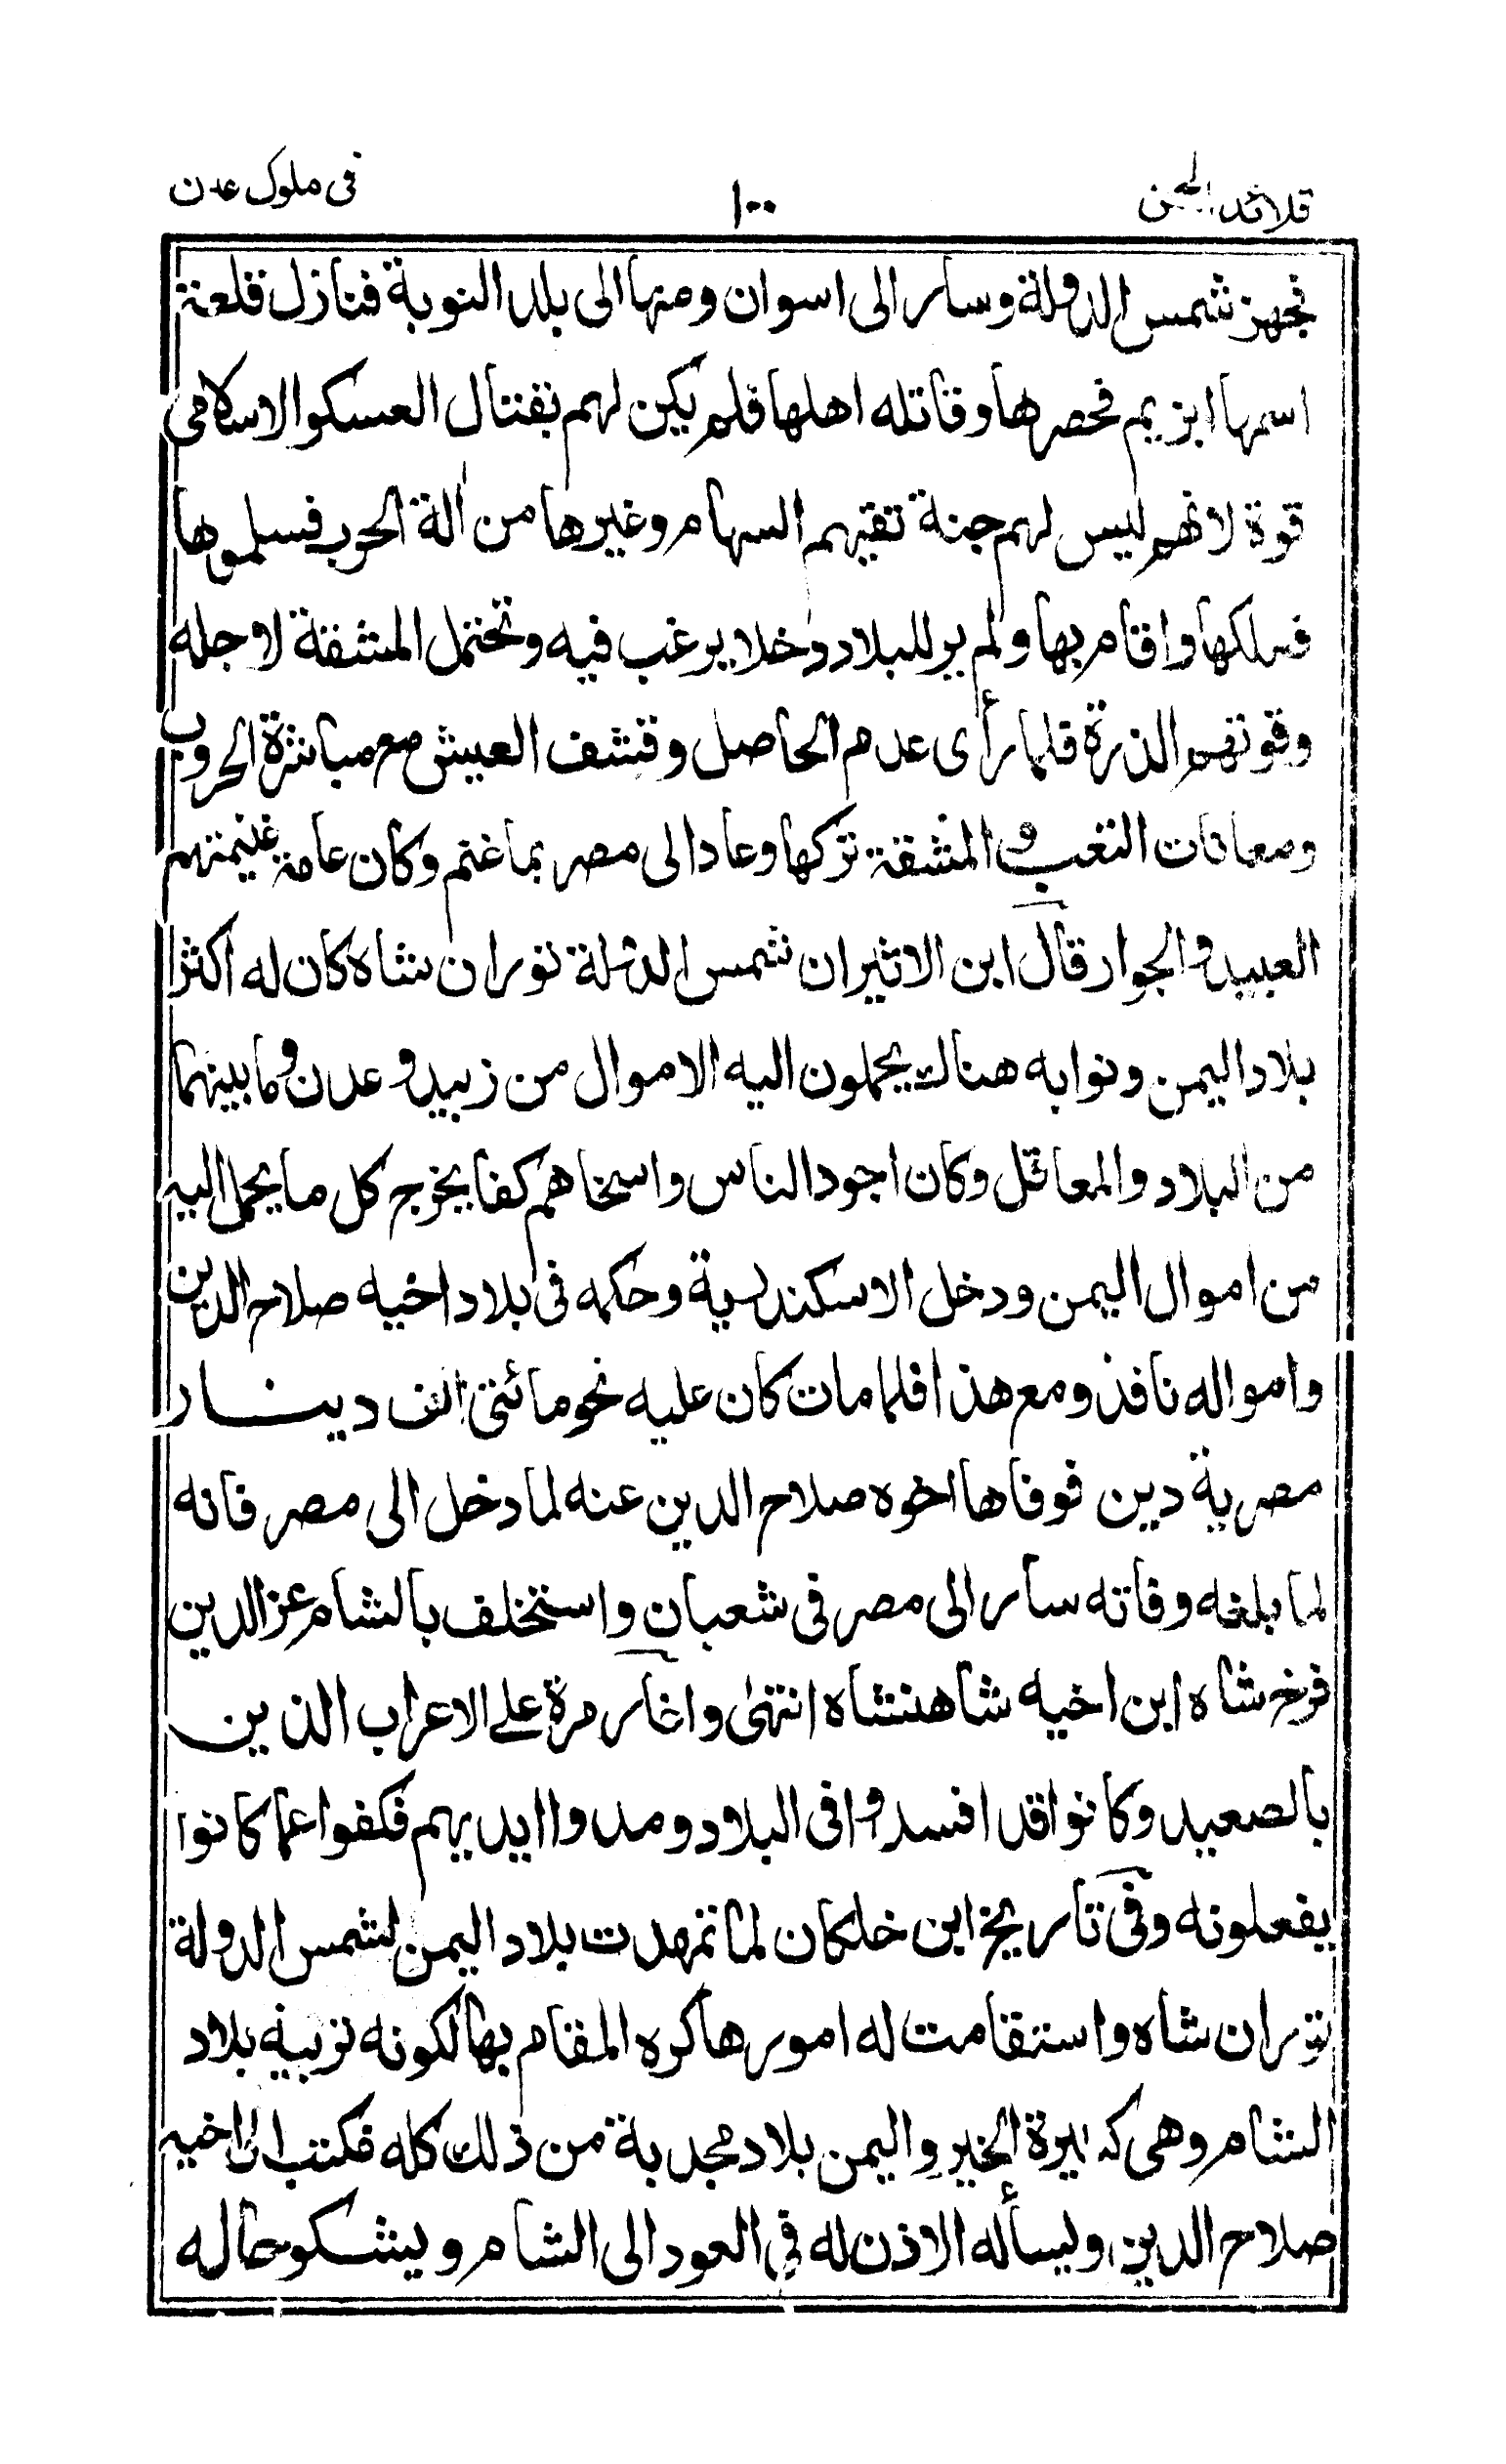 قلائد الجمن ١٠٠ فى ملوك عدن
فجهز شمس الدولة وسار الى اسوان ومنها الى بلد النوبة فنازل قلعة
اسمها ابزيم فحصرها وقاتله اهلها فلم يكن لهم بقتال العسكر الاسلامى
قوة لانهم ليس لهم جنة تقيهم السهام وغيرها من آلة الحرب فسلموها
فملكها واقام بها ولم ير للبلاد دخلا يرغب فيه وتحتمل المشقة لاجله
وقوتهم الذرة فلما رأى عدم الحاصل وقشف العيش مع مباشرة الحروب
ومعانات التعب والمشقة تركها وعاد الى مصر بما غنم وكان عامة غنيمتهم
العبيد والجوار قال ابن الاثير ان شمس الدولة توران شاه كان له اكثر
بلاد اليمن ونوابه هناك يحملون اليه الاموال من زبيد وعدن وما بينهما
من البلاد والمعاقل وكان اجود الناس واسخاهم كفا يخرج كل ما يحمل اليه
من اموال اليمن ودخل الاسكندرية وحكمه فى بلاد اخيه صلاح الدين
وامواله نافذ ومع هذا فلما مات كان عليه نحو مائتى الف دينار
مصرية دين فوفاها اخوه صلاح الدين عنه لما دخل الى مصر فانه
لما بلغه وفاته سار الى مصر فى شعبان واستخلف بالشام عز الدين
فرخ شاه ابن اخيه شاهنشاه انتهى واغار مرة على الاعراب الذين
بالصعيد وكانوا قد افسدوا فى البلاد ومدوا ايديهم فكفوا عما كانوا
يفعلونه وفى تاريخ ابن خلكان لما تمهدت بلاد اليمن لشمس الدولة
توران شاه واستقامت له امورها كره المقام بها لكونه تربية بلاد
الشام وهى كثيرة الخير واليمن بلاد مجدبة من ذلك كله فكتب الى اخيه
صلاح الدين ويسأله الاذن له فى العود الى الشام ويشكو حاله